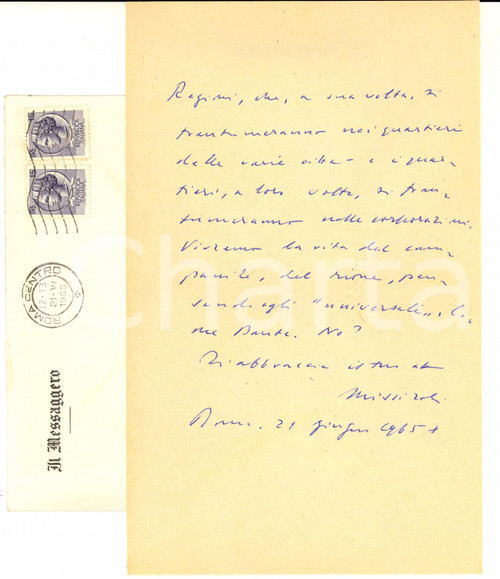 Regioni, che, a sua volta, si
frantumeranno nei quartieri
delle varie città - e i quar-
tieri, a loro volta, si fran-
tumeranno nelle corporazioni.
Vivremo la vita del cam-
panile, del rione, pen-
sando agli "universali",
me Dante. No?
Ti abbraccia il tuo
Missiroli
Roma. 21 giugno 1965
Il Messaggero
ROMA CENTRO
12-13
21-VI
1965
Charta